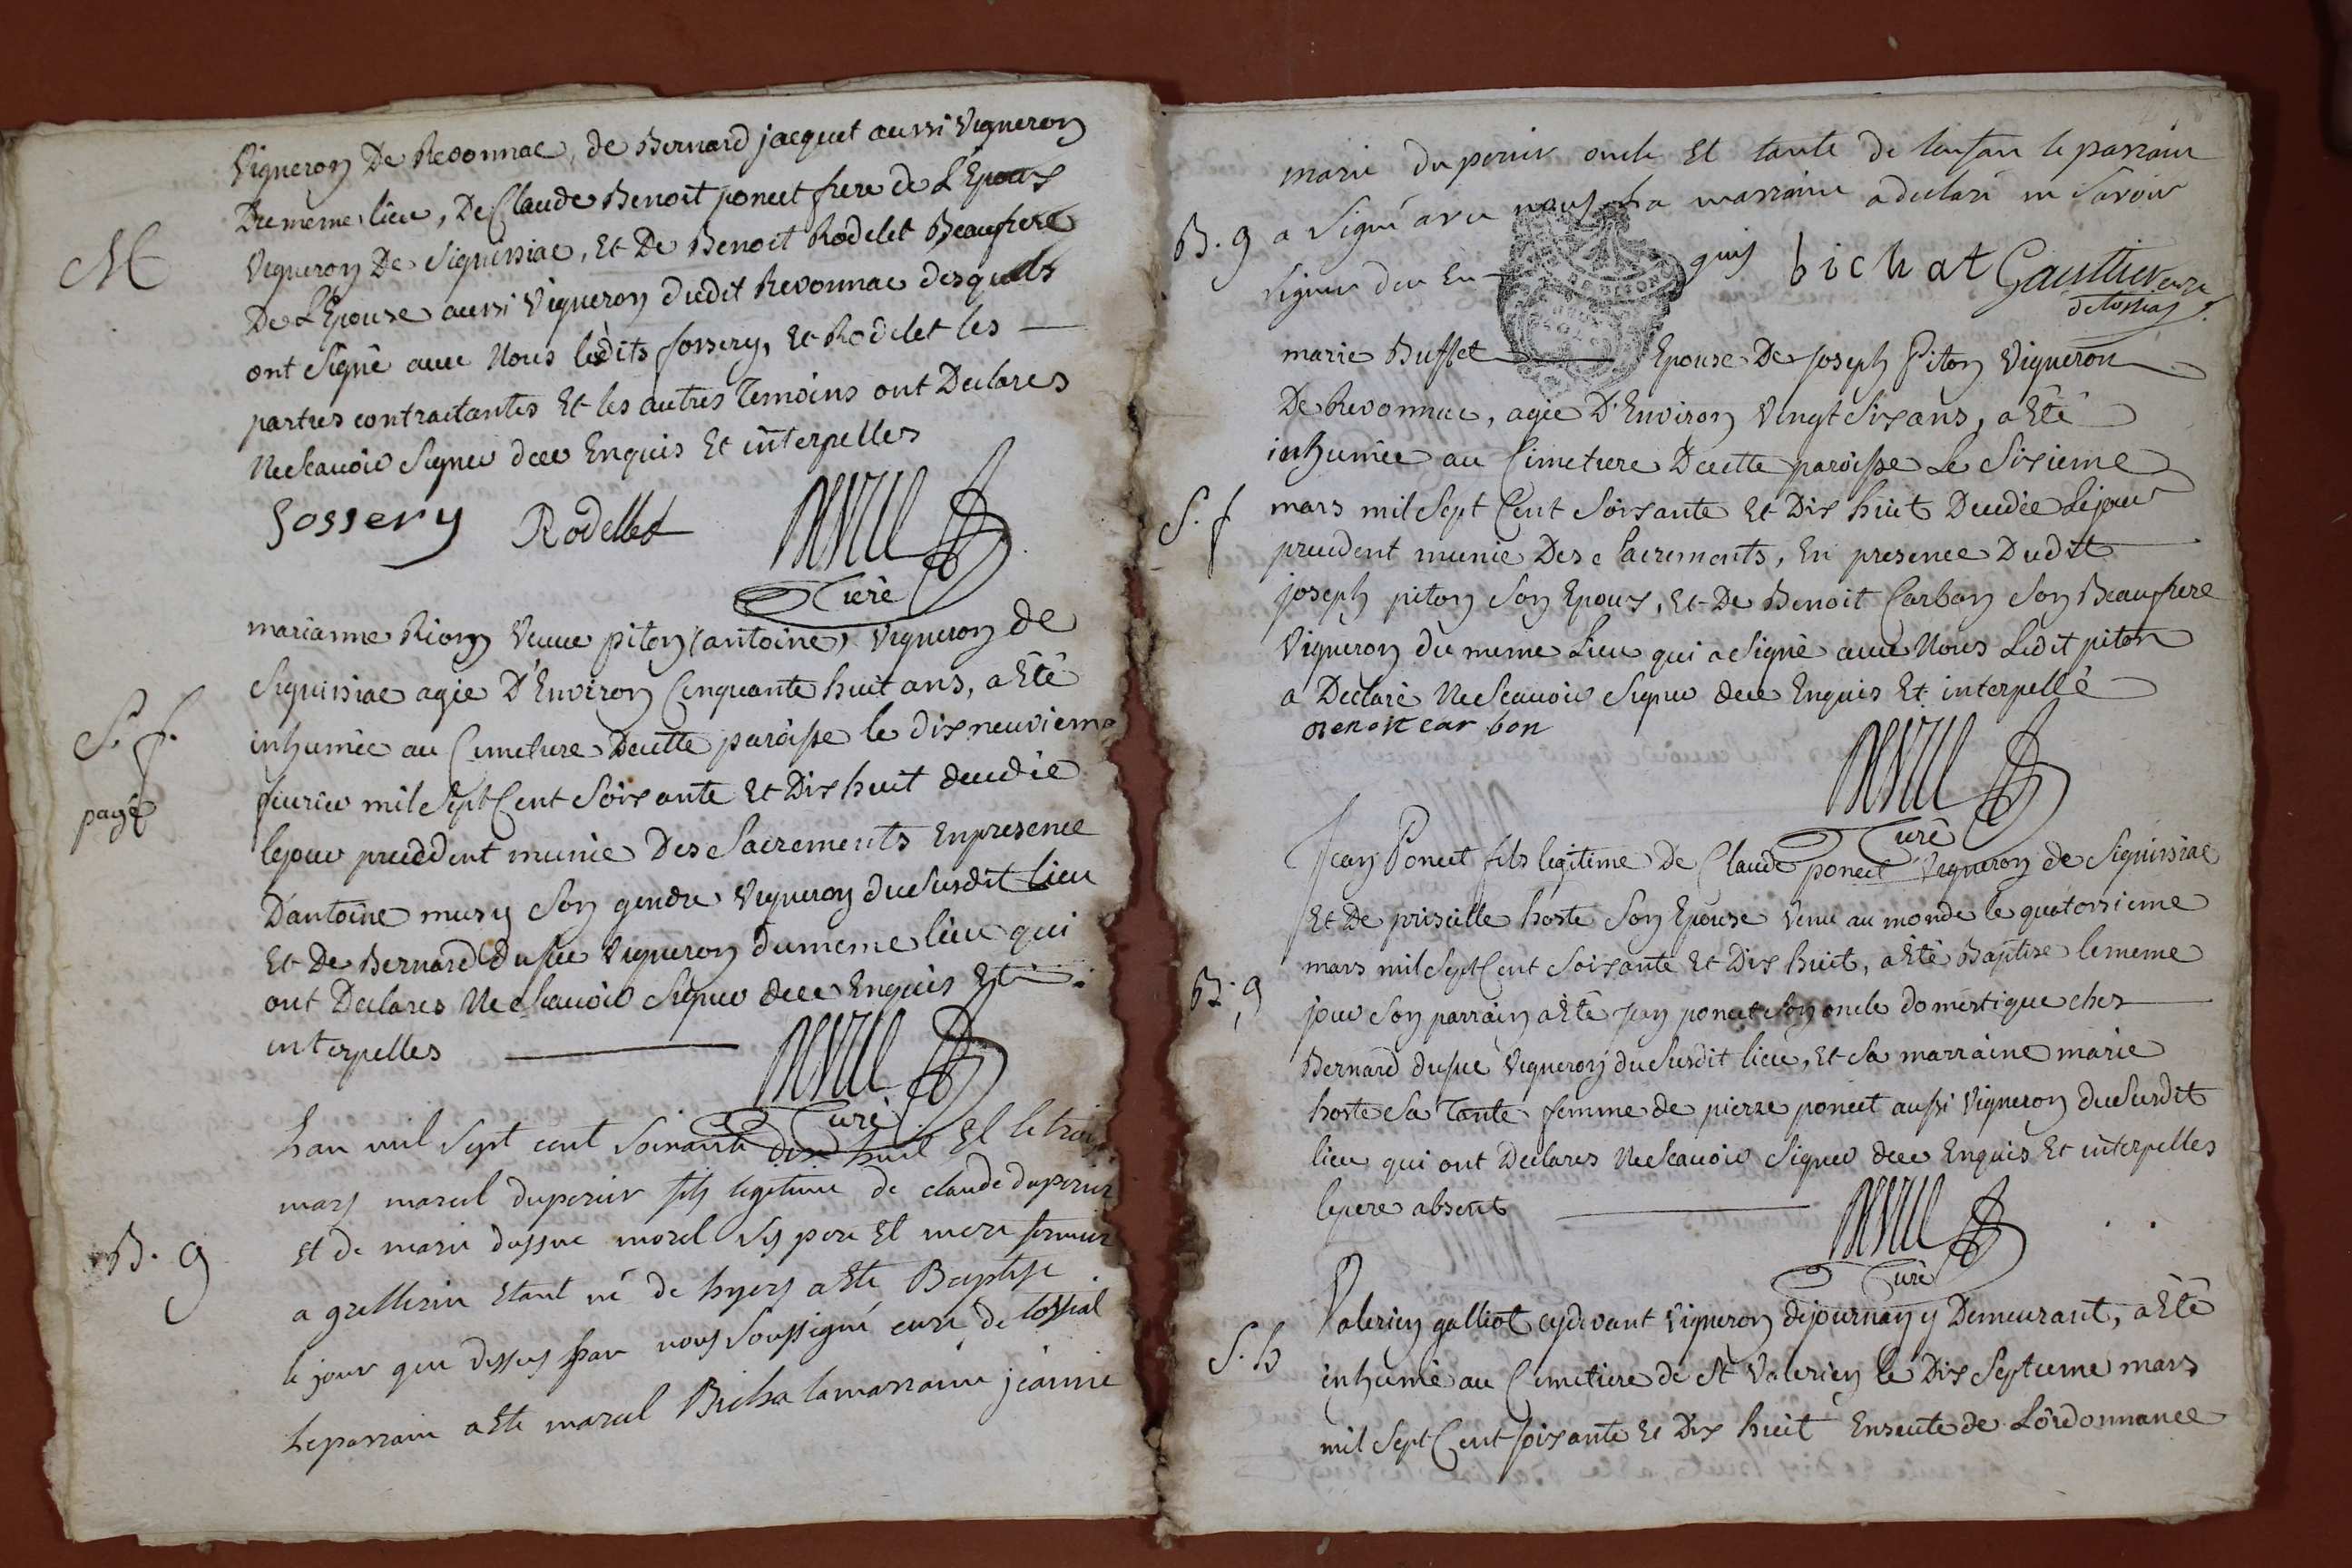 Vigneron De Revonnac, de Bernard jacquet aussi Vigneron
Du meme lieu, De Claude Benoit poncet frere de L'Epoux
M
Vigneron De Siguissiac, Et De Benoit Rodelet Beaufrere
De L'Epouse aussi Vigneron dudit Revonnac desquels
ont signé avec Nous lesdits fossery, Et Rodelet les
parties contractantes Et les autres Temoins ont Declarés
Ne Scavoir Signer dece Enquis Et interpellés
Fossery Rodellet
Curé
marianne Rion Veuve piton (antoine) Vigneron de
Siguissiac agée D'Environ Cinquante huit ans, a Eté
S. f.
inhumée au Cimetiere Decette paroisse le dix neuvieme
payé
fevrier mil Sept Cent Soixante Et Dix huit decedée
lejour precedent munie Des Sacrements En presence
D'antoine musy Son gendre Vigneron dususdit lieu
Et De Bernard dusuc Vigneron dumeme lieu qui
ont Declarés Ne Scavoir Signer dece Enquis Et
interpellés
Curé
Lan mil sept cent soixante dix huit Et le trois
mars marcel duperier fils legitime de claude duperier
B. g
Et de marie dussuc morel ses pere Et mere fermier
a grillerin Etant né de hyers a Eté Baptisé
le jour que dessus par nous soussigné curé de tossiat
le parrain a Eté marcel Bicha la marraine jeanne
marie duperier oncle Et tante de lenfan le parrain
B. g
a Signé avec nous La marraine a declaré ne Savoir
signer dece En quis bichat Gauttier curé
de tossiat
marie Buffet Epouse De Joseph Piton Vigneron
De Revonnac, agée D'Environ Vingt Six ans, a Eté
inhumée au Cimetiere Decette paroisse Le Sixieme
S. f
mars mil Sept Cent Soixante Et Dix huit Decedée Lejour
precedent munie Des Sacrements, En presence Dudit
joseph piton Son Epoux, Et De Benoit Carbon Son Beaufrere
Vigneron du meme Lieu qui a Signé avec Nous Ledit piton
a Declaré Ne Scavoir Signer dece Enquis Et interpellé
Benoit carbon
Curé
Jean Poncet fils legitime de Claude poncet Vigneron de Siguissiac
Et De priscille hoste Son Epouse Venu au monde le quatorsieme
mars mil Sept Cent Soixante Et Dix huit, a Eté Baptisé lememe
B. g
jour Son parrain a Eté jean poncet Son oncle domestique ches
Bernard dusuc Vigneron dususdit lieu, Et Sa marraine marie
hoste Sa Tante femme de pierre poncet aussi Vigneron dususdit
lieu qui ont Declarés Ne Scavoir Signer dece Enquis Et interpellés
lepere absent
Curé
Valerien galliot cydevant Vigneron dejournan y Demeurant, a Eté
S. h
inhumé au Cimetiere de St Valerien le Dix Septieme mars
mil Sept Cent soixante Et Dix huit Ensuite de Lordonnance